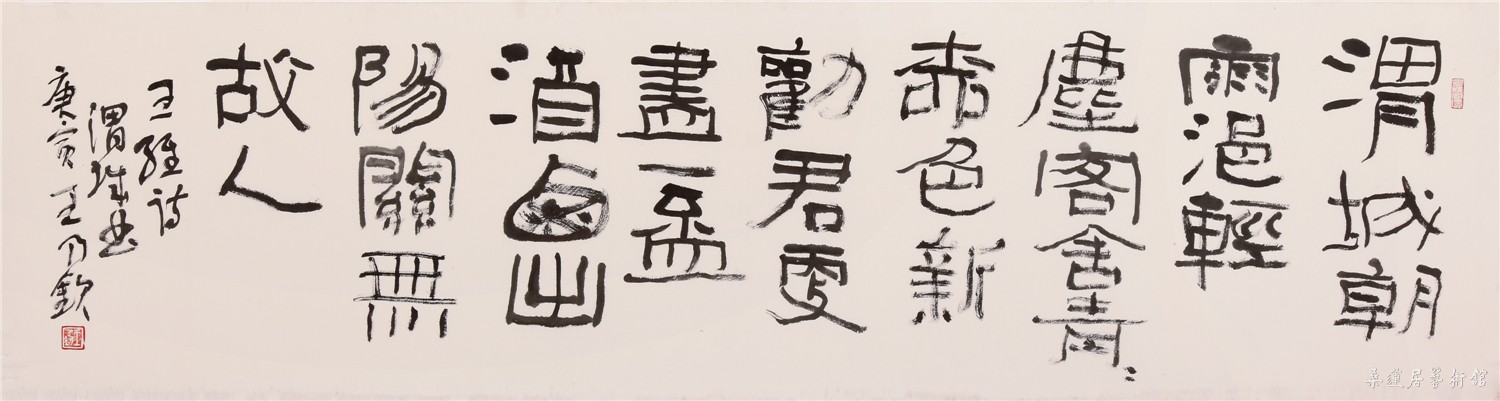 渭城朝
雨浥輕
塵客舍青〻
柳色新
勸君更
盡一盃
酒西出
陽關無
故人
王維詩
渭城曲
庚寅王乃欽
桑蓮居藝術館